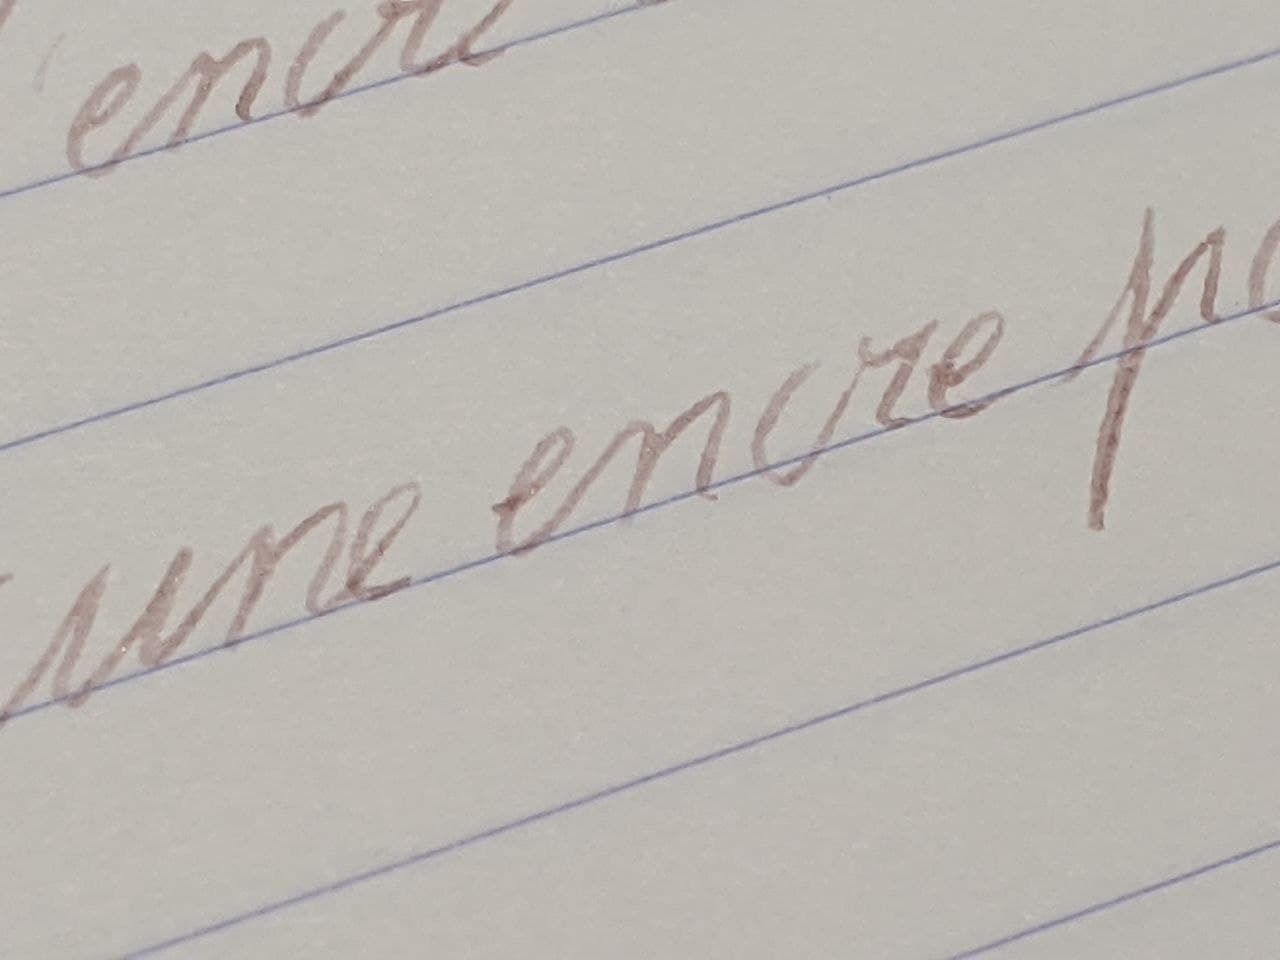 encre
une encre